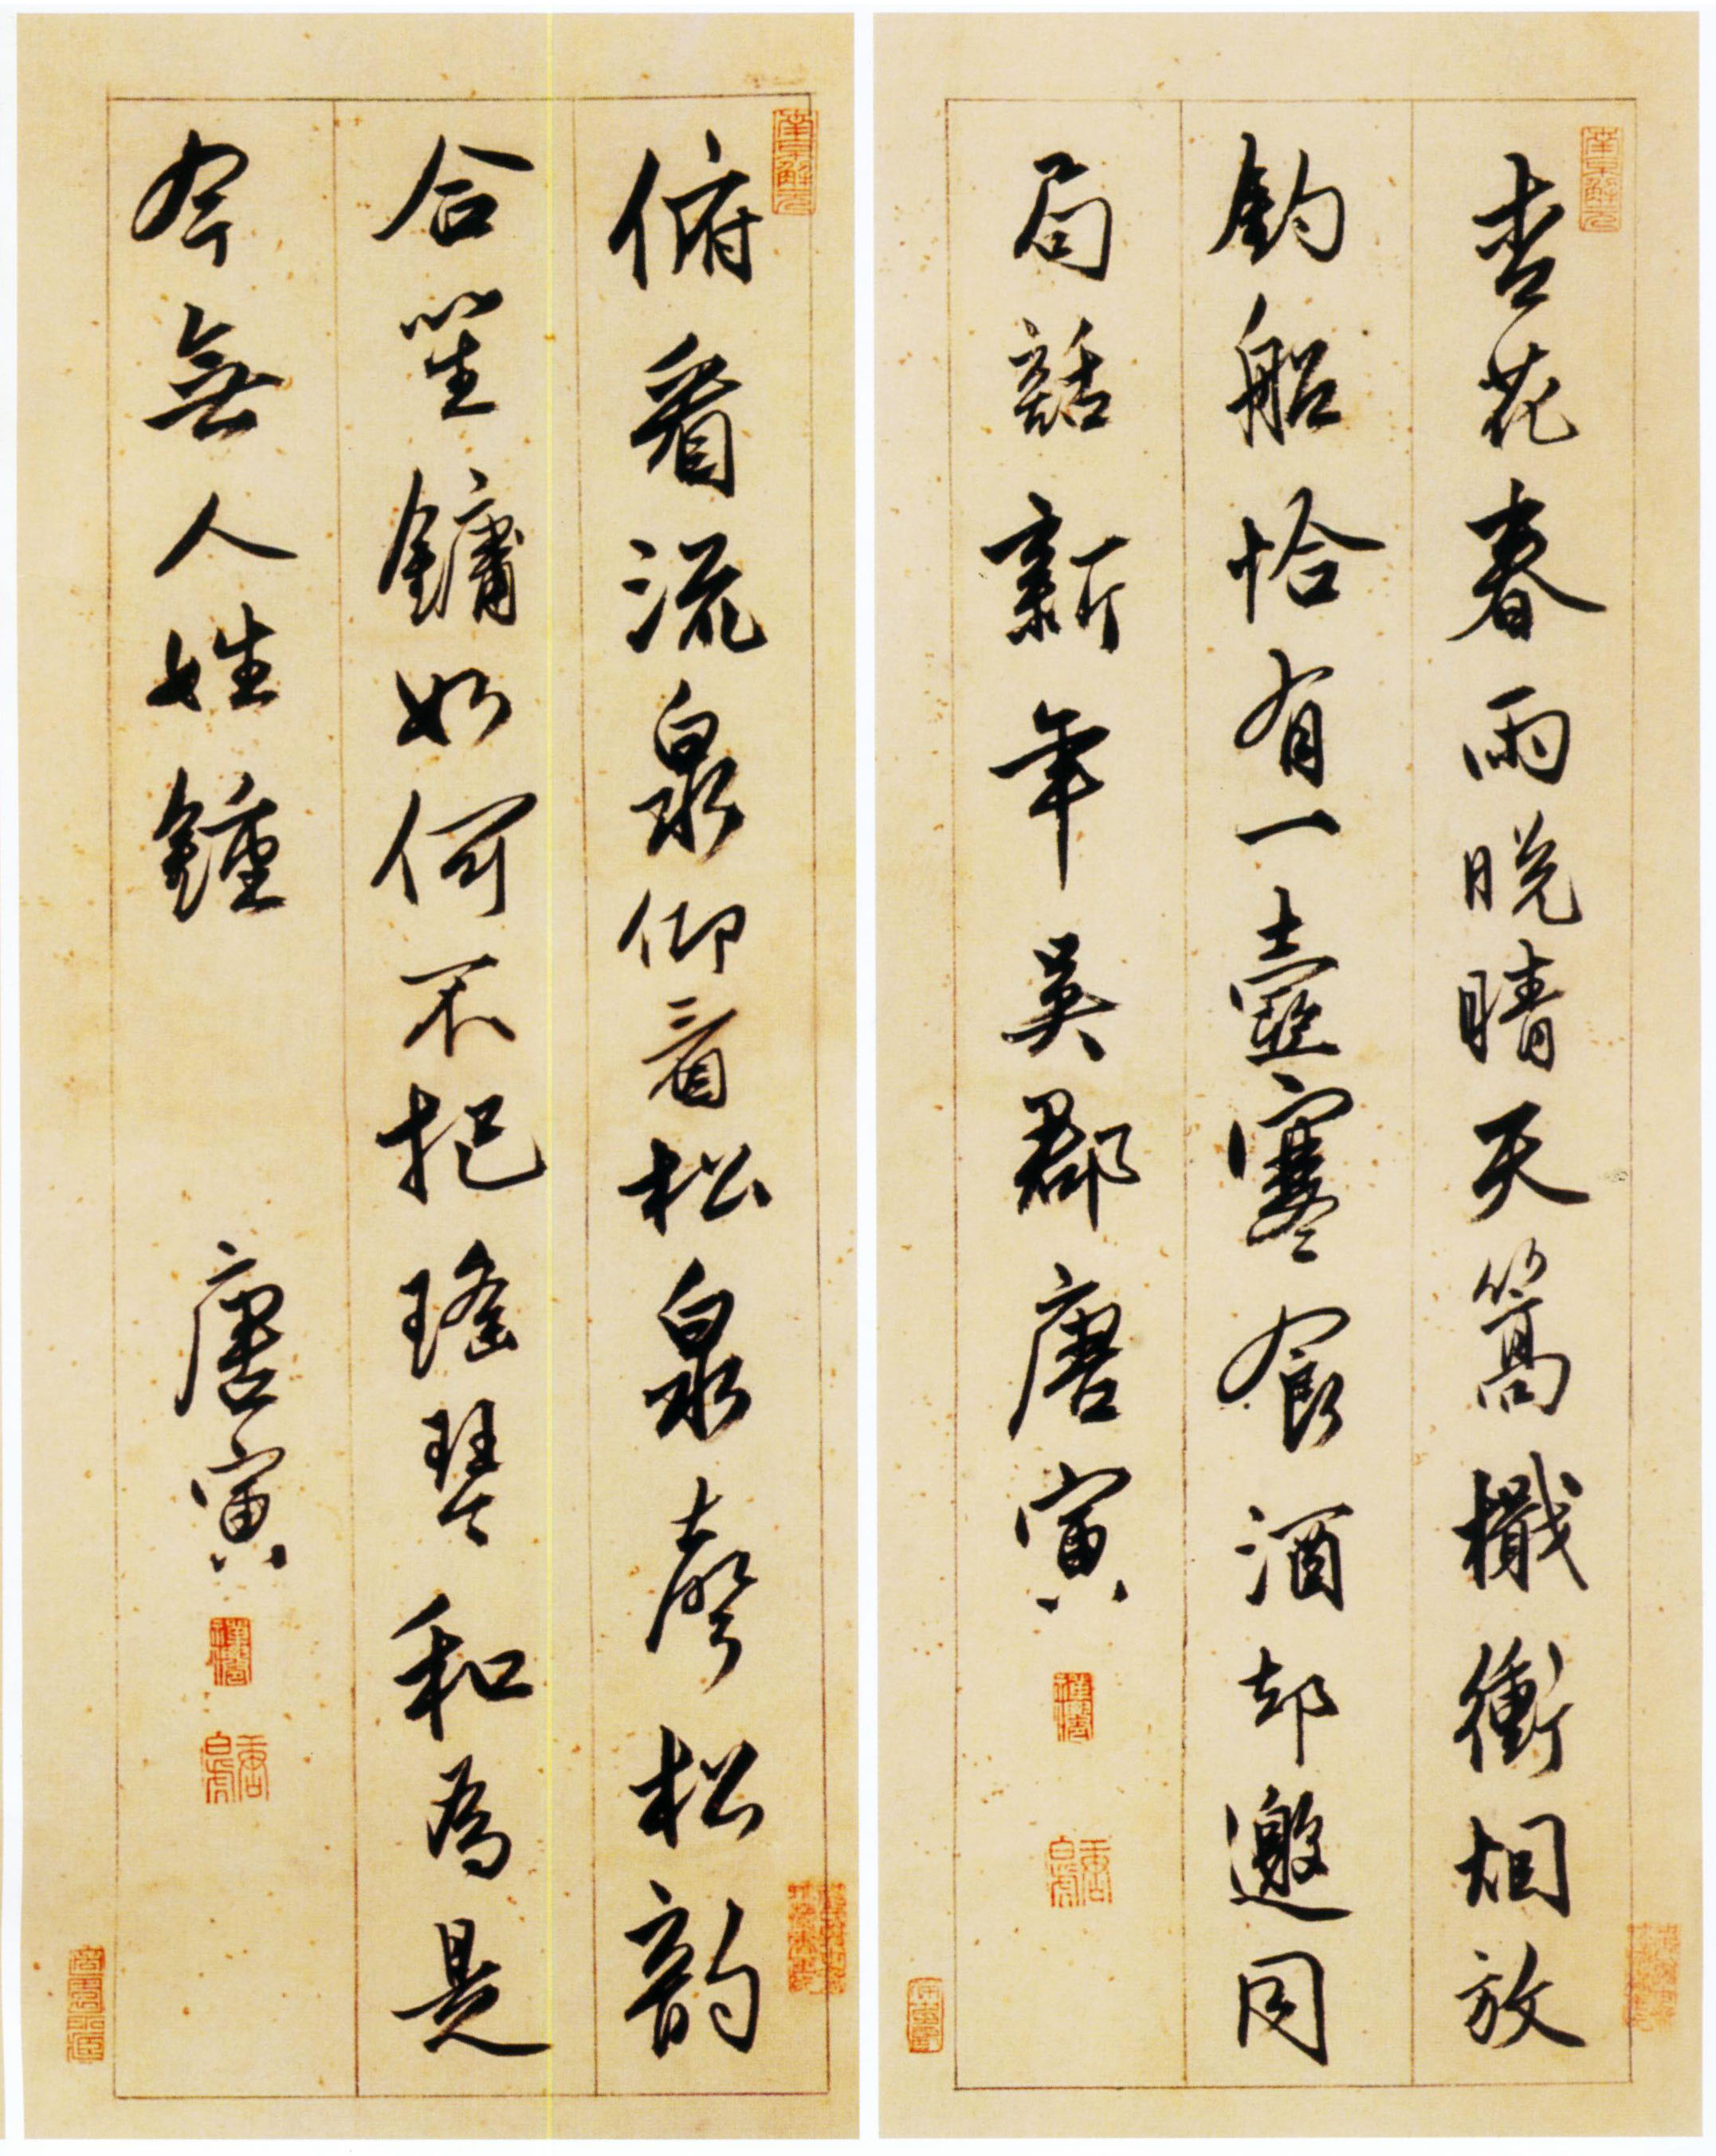 杏花春雨晚晴天篙檝衝烟放
釣船恰有一壺寒食酒却邀同
局話新年吳郡唐寅
俯看流泉仰看松泉聲松韵
合笙鏞如何不把瑤琴和為是
今無人姓鍾
唐寅
南京解元
南京解元